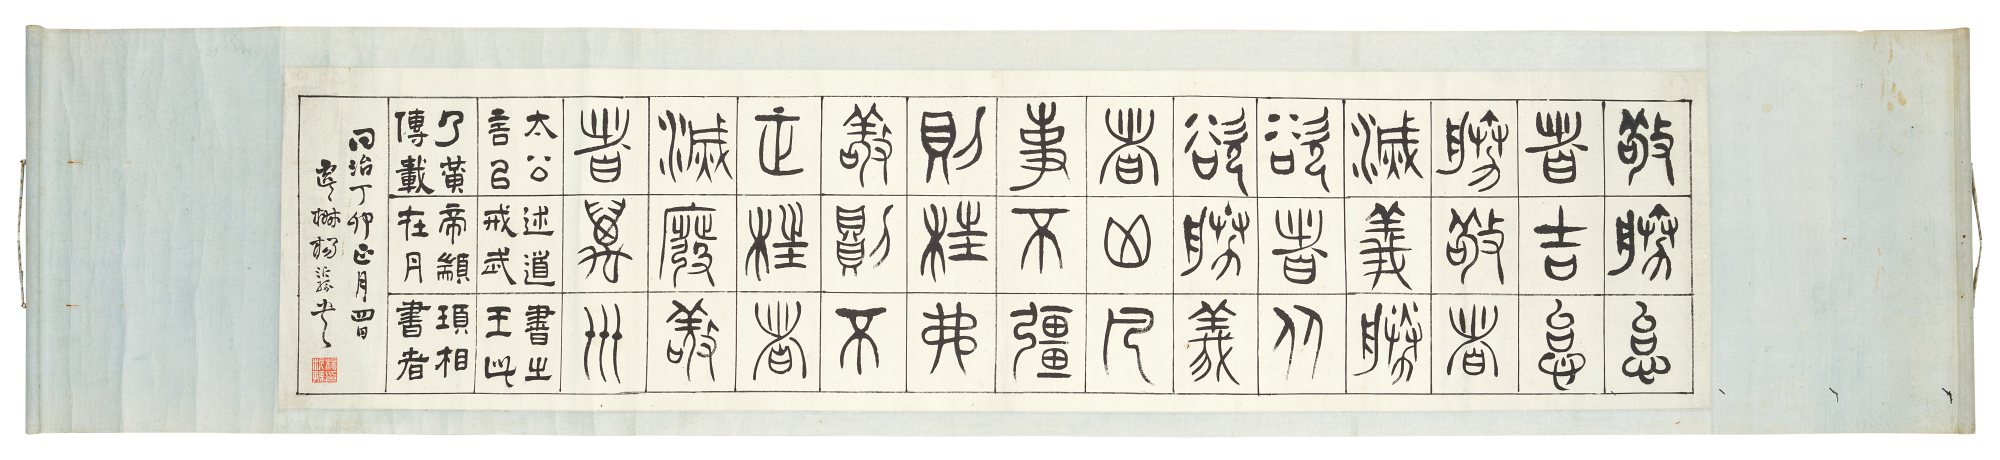 敬勝怠
者吉怠
勝敬者
滅義勝
欲者从
欲勝義
者凶凡
事不彊
則枉弗
敬則不
正枉者
滅廢敬
者萬世
太公述道書之
言㠯戒武王此
乃黃帝顓頊相
傳載在丹書者
同治丁卯正月四日
楊沂孫書